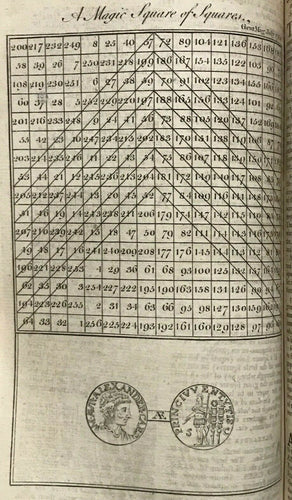 A Magic Square of Squares.
Gent. Mag.
200 217 232 249 8 25 40 57 72 89 104 121 136 153 168
58 39 26 7 250 231 218 199 186 167 154 135 122 103 90
198 219 230 251 6 27 38 59 70 91 102 123 134 155
60 37 28 5 252 229 220 197 188 165 156 133 124 101
201 216 233 248 9 24 41 56 73 88 105 120 137 152
55 42 23 10 247 234 215 202 183 170 151 138 119 106
203 214 235 246 11 22 43 54 75 86 107 118 139 150
53 44 21 12 245 236 213 204 181 172 149 140 117 108
205 212 237 244 13 20 45 52 77 84 109 116 141 148
51 46 19 14 243 238 211 206 179 174 147 142 115 110
207 210 239 242 15 18 47 50 79 82 111 114 143 146
49 48 17 16 241 240 209 208 177 176 145 144 113 112
196 221 228 253 4 29 36 61 68 93 100 125 132 157
62 35 30 3 254 227 222 195 190 163 158 131 126 99
194 223 226 255 2 31 34 63 66 95 98 127 130 159
64 33 32 1 256 225 224 193 192 161 160 129 128 97 96
Æ